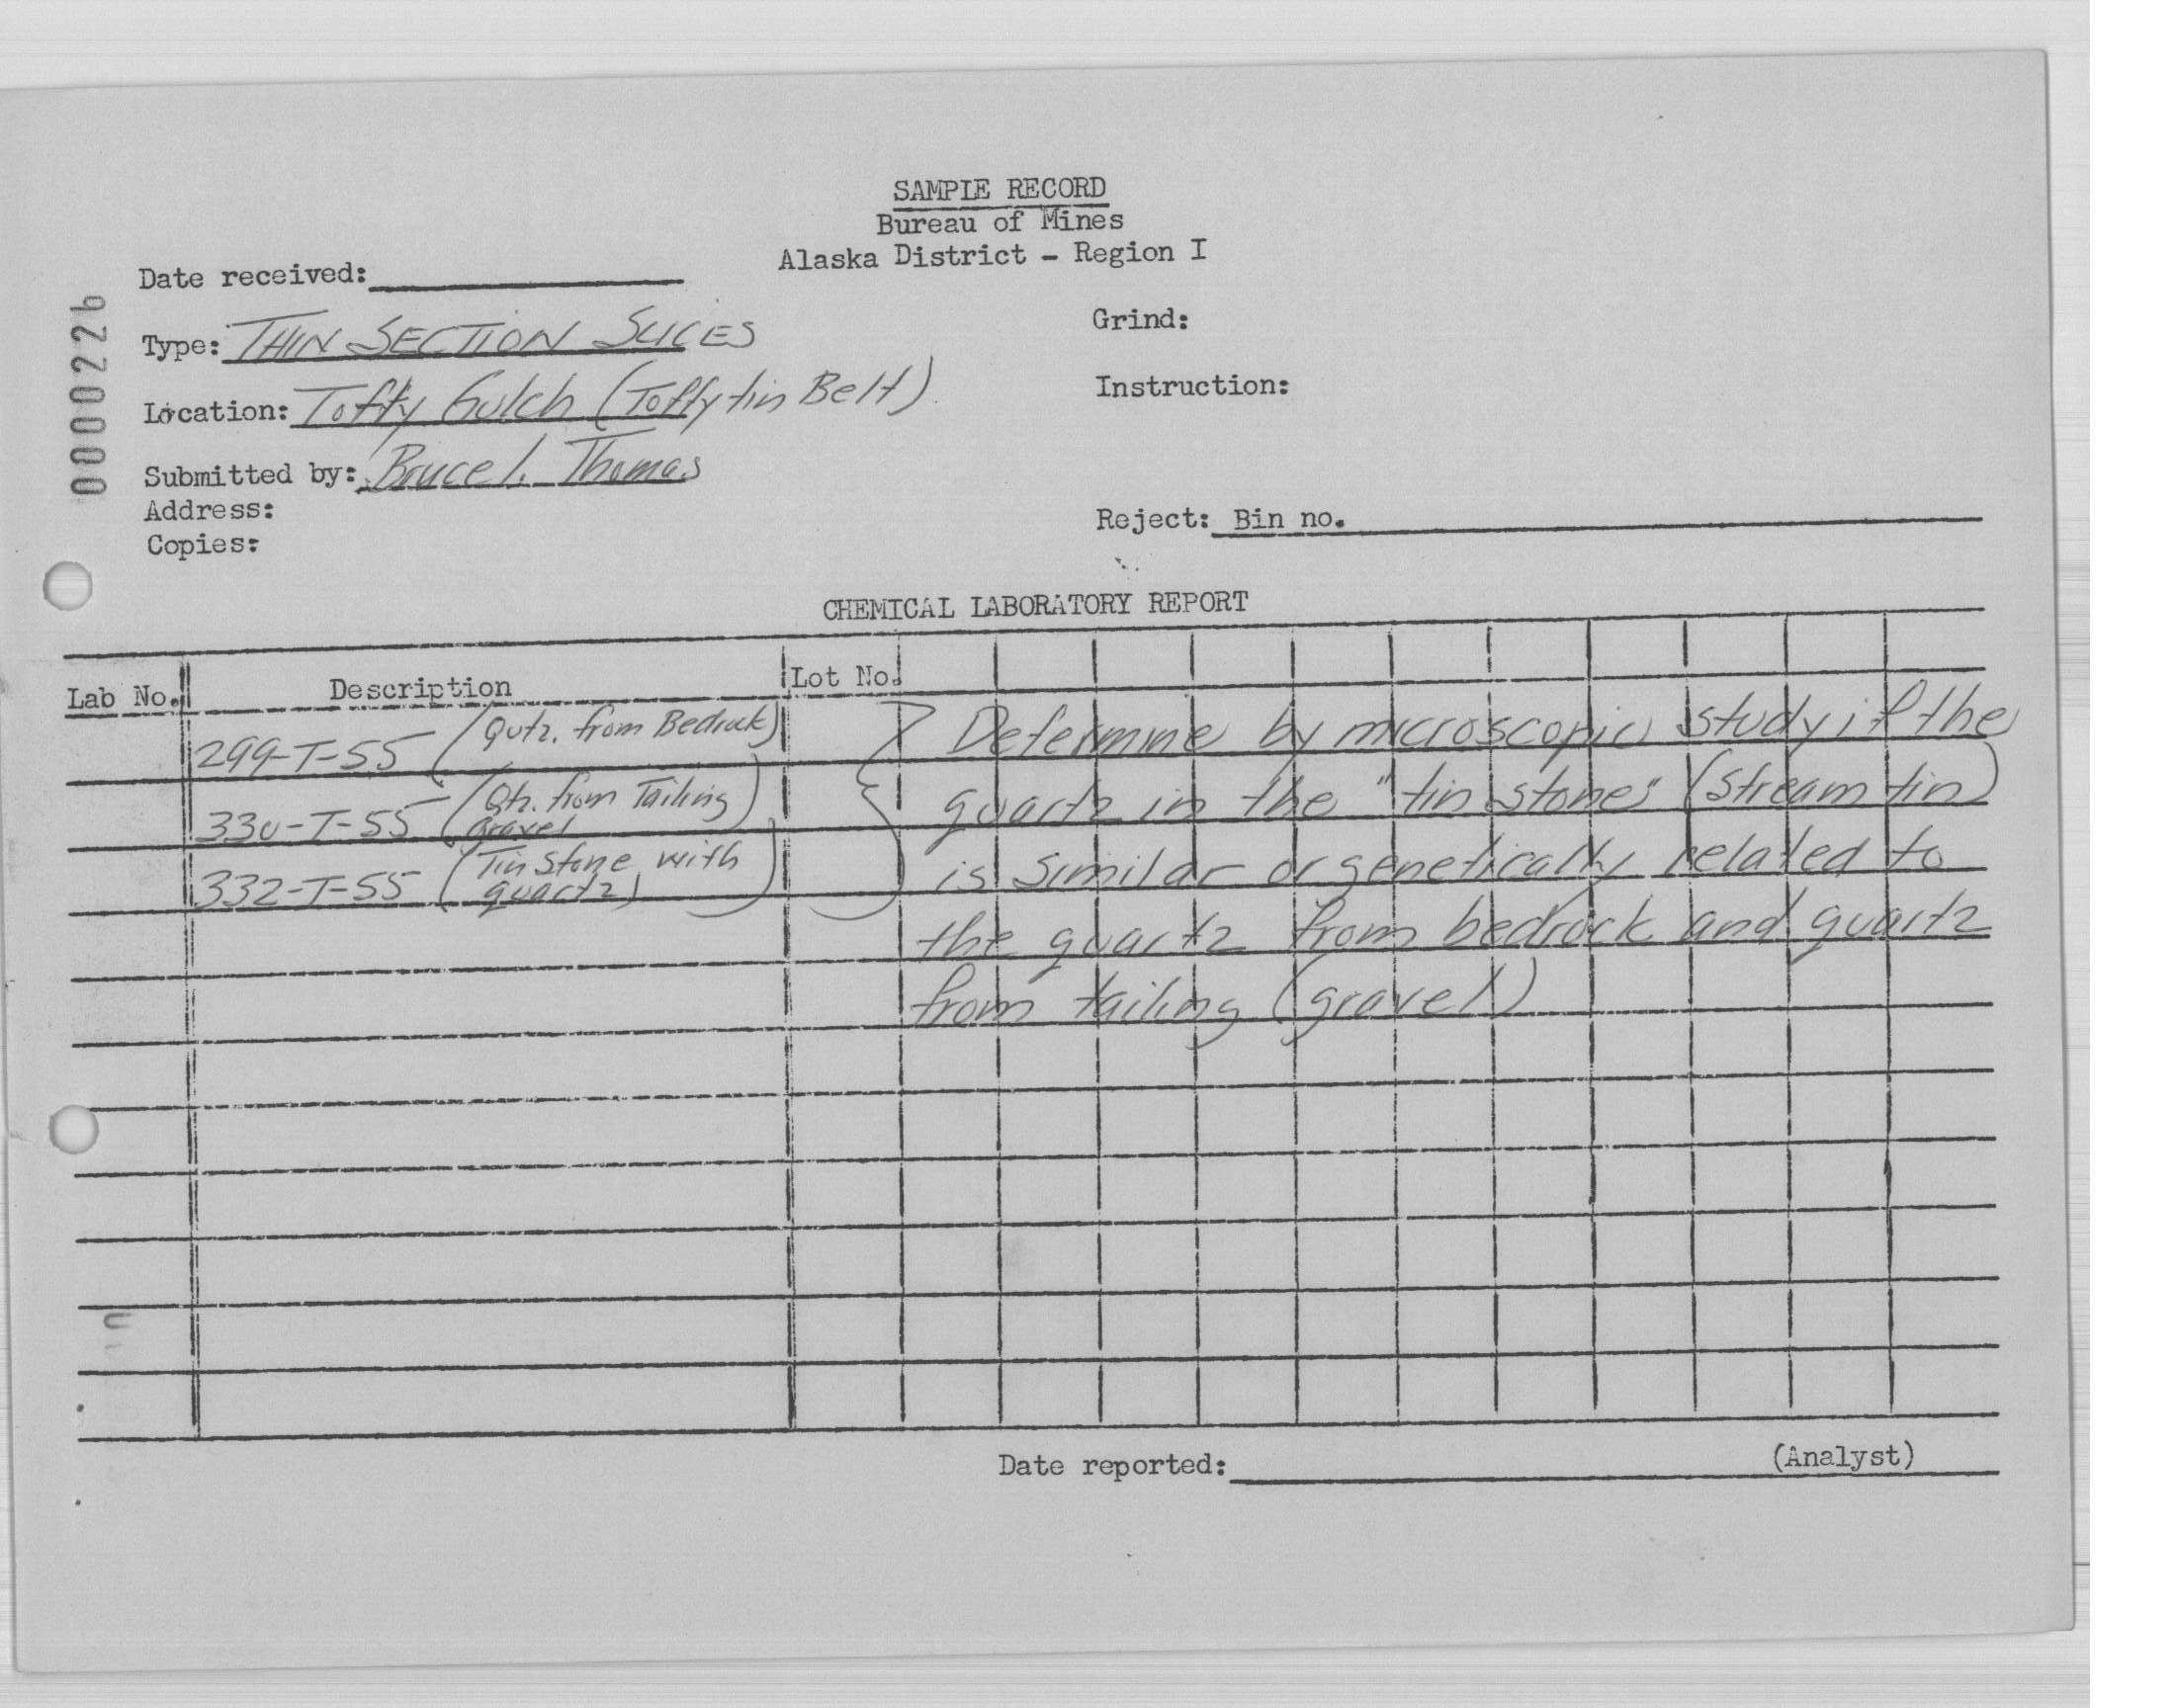 SAMPLE RECORD
Bureau of Mines
Alaska District - Region I
Date received:
0000226
Type: THIN SECTION SLICES
Grind:
Location: Tofty Gulch (Tofty tin Belt)
Instruction:
Submitted by: Bruce I. Thomas
Address:
Reject: Bin no.
Copies:
CHEMICAL LABORATORY REPORT
Lab No. Description Lot No.
299-T-55 (Qutz. from Bedrock)
330-T-55 (Qtz. from Tailing gravel)
332-T-55 (Tin Stone with quartz)
Determine by microscopic study if the
quartz in the "tin stones" (stream tin)
is similar or genetically related to
the quartz from bedrock and quartz
from tailing (gravel)
Date reported:
(Analyst)